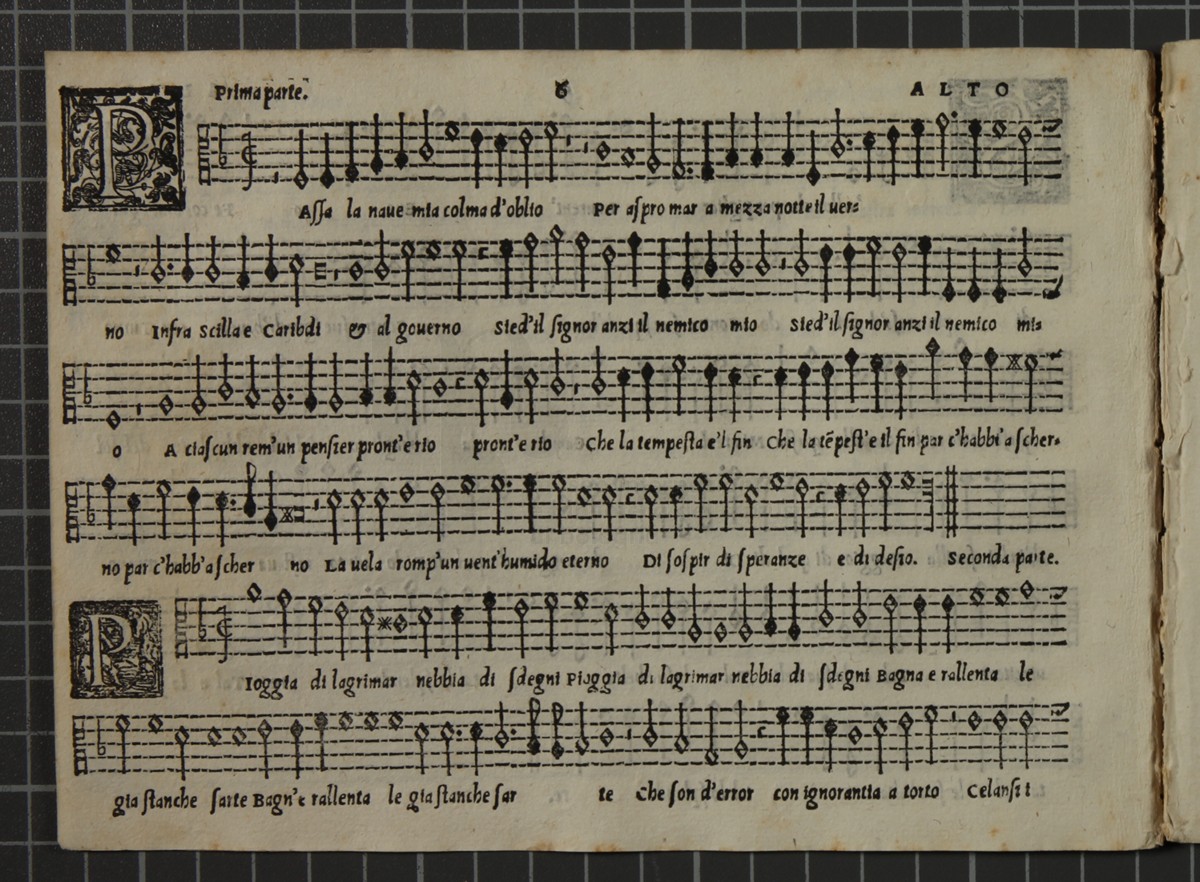 Prima parte. 6 ALTO
PAſſa la naue mia colma d'oblio Per aſpro mar a mezza notte il uer=
no Infra Scilla e Caribdi & al gouerno Sied'il ſignor anzi il nemico mio Sied'il ſignor anzi il nemico mi=
o A ciaſcun rem'un penſier pront'e rio pront'e rio Che la tempeſta e'l fin Che la tẽpeſt'e il fin par c'habbi'a ſcher=
no par c'habb'a ſcher no La uela romp'un uent'humido eterno Di ſoſpir di ſperanze e di deſio. Seconda parte.
PIoggia di lagrimar nebbia di ſdegni Pioggia di lagrimar nebbia di ſdegni Bagna e rallenta le
gia ſtanche ſarte Bagn'e rallenta le gia ſtanche ſar te Che ſon d'error con ignorantia a torto Celanſi i